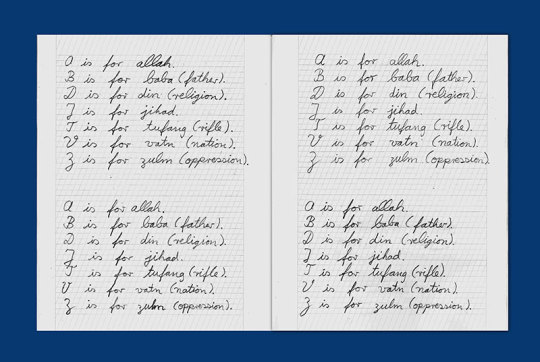 A is for allah.
B is for baba (father).
D is for din (religion).
J is for jihad.
T is for tufang (rifle).
V is for vatn (nation).
Z is for zulm (oppression).
A is for allah.
B is for baba (father).
D is for din (religion).
J is for jihad.
T is for tufang (rifle).
V is for vatn (nation).
Z is for zulm (oppression).
A is for allah.
B is for baba (father).
D is for din (religion).
J is for jihad.
T is for tufang (rifle).
V is for vatn (nation).
Z is for zulm (oppression).
A is for allah.
B is for baba (father).
D is for din (religion).
J is for jihad.
T is for tufang (rifle).
V is for vatn (nation).
Z is for zulm (oppression).